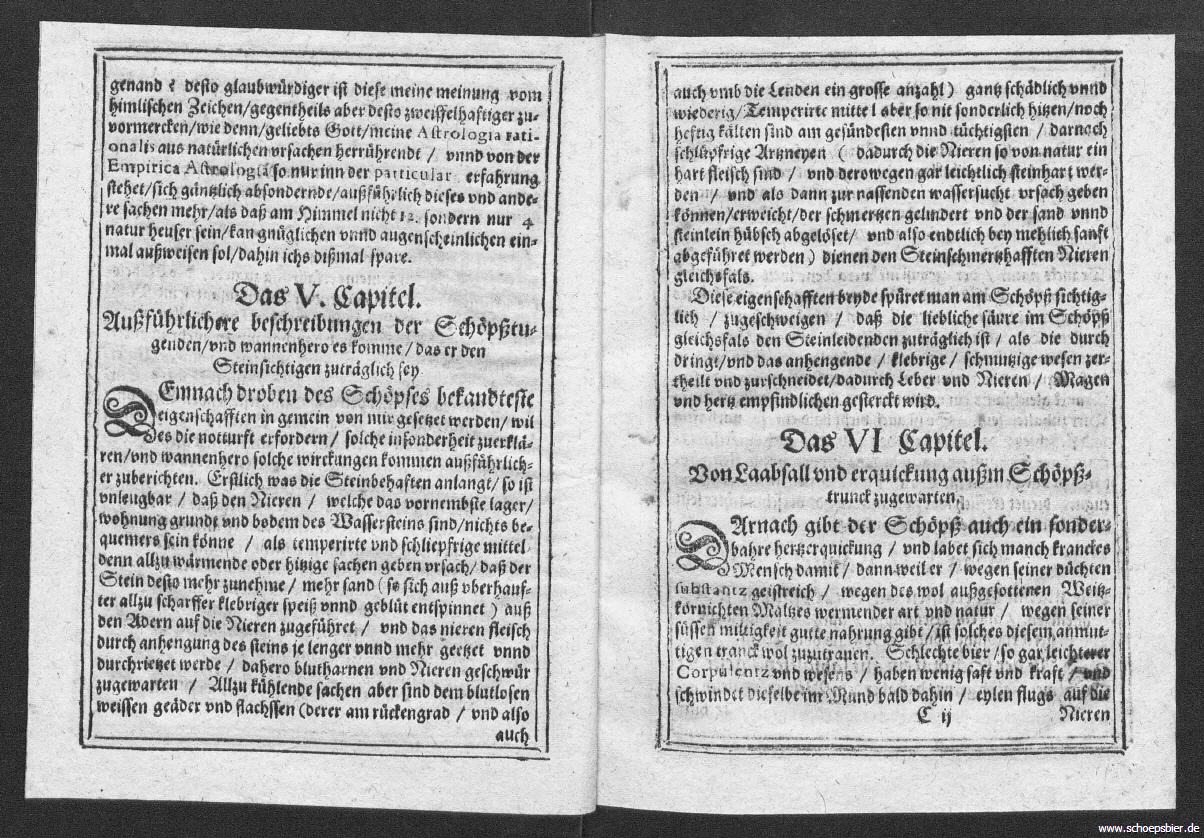 genand / desto glaubwürdiger ist diese meine meinung vom
himlischen Zeichen/gegentheils aber desto zweiffelhaftiger zu-
vormercken/wie denn/geliebts Gott/meine Astrologia rati-
onalis aus natürlichen vrsachen herrührendt / vnnd von der
Empirica Astrologia so nur inn der particular erfahrung
stehet/sich gäntzlich absondernde/außführlich dieses vnd ande-
re sachen mehr/als daß am Himmel nicht 12. sondern nur 4
natur heuser sein/kan gnüglichen vnnd augenscheinlichen ein-
mal außweisen sol/dahin ichs dißmal spare.
Das V. Capitel.
Außführlichere beschreibungen der Schöpßtu-
genden/vnd wannenhero es komme/das er den
Steinsichtigen zuträglich sey.
DEmnach droben des Schöpses bekandteste
eigenschafften in gemein von mir gesetzet werden/ wil
es die notturft erfordern / solche insonderheit zuerklä-
ren/vnd wannenhero solche wirckungen kommen außführlich-
er zuberichten. Erstlich was die Steinbehaften anlangt/ so ist
vnleugbar / daß den Nieren / welche das vornembste lager/
wohnung grundt vnd bodem des Wassersteins sind/nichts be-
quemers sein könne / als temperirte vnd schliepfrige mittel
denn allzu wärmende oder hitzige sachen geben vrsach/ daß der
Stein desto mehr zunehme / mehr sand ( so sich auß vberhauf-
ter allzu scharffer klebriger speiß vnnd geblüt entspinnet ) auß
den Adern auf die Nieren zugeführet / vnd das nieren fleisch
durch anhengung des steins je lenger vnnd mehr geetzet vnnd
durchrietzet werde / dahero blutharnen vnd Nieren geschwür
zugewarten / Allzu kühlende sachen aber sind dem blutlosen
weissen geäder vnd flachssen (derer am rückengrad / vnd also
auch
auch vmb die Lenden ein grosse anzahl ) gantz schädlich vnnd
wiederig/Temperirte mittel aber so nit sonderlich hitzen/noch
heftig kälten sind am gesündesten vnnd tüchtigsten / darnach
schlüpfrige Artzneyen ( dadurch die Nieren so von natur ein
hart fleisch sind / vnd derowegen gar leichtlich steinhart wer-
den / vnd als dann zur nassenden wassersucht vrsach geben
können/erweicht/der schmertzen gelindert vnd der sand vnnd
steinlein hübsch abgelöset/ vnd also endtlich bey mehlich sanft
abgeführet werden) dienen den Steinschmertzhafften Nieren
gleichsfals.
Diese eigenschafften beyde spüret man am Schöpß sichtig-
lich / zugeschweigen / daß die liebliche säure im Schöpß
gleichsfals den Steinleidenden zuträglich ist / als die durch
dringt/vnd das anhengende / klebrige / schmutzige wesen zer-
theilt vnd zurschneidet/dadurch Leber vnd Nieren / Magen
vnd hertz empfindlichen gesterckt wird.
Das VI Capitel.
Von Laabsall vnd erquickung außm Schöpß-
trunck zugewarten.
DArnach gibt der Schöpß auch ein sonder-
bahre hertzerquickung / vnd labet sich manch kranckes
Mensch damit / dann weil er / wegen seiner düchten
substantz geistreich / wegen des wol außgesottenen Weitz-
körnichten Maltzes wermender art vnd natur / wegen seiner
süssen miltigkeit gutte nahrung gibt/ist solches diesem anmut-
tigen tranck wol zuzutrauen. Schlechte bier /so gar leichterer
Corpulentz vnd wesens / haben wenig saft vnd kraft / vnd
schwindet dieselbe im Mund bald dahin / eylen flugs auf die
C ij
Nieren
www.schoepsbier.de